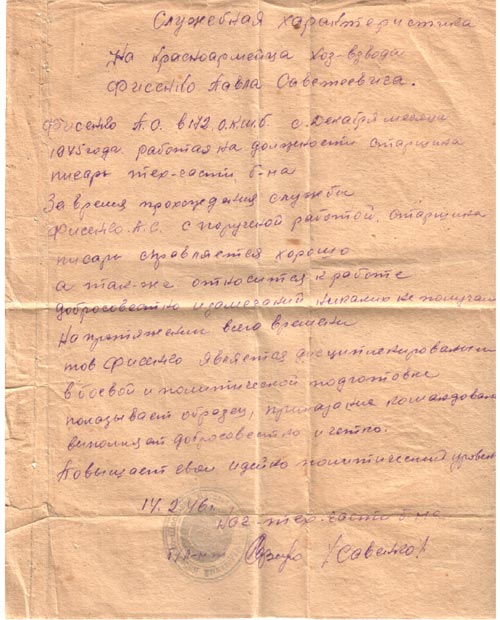 Служебная характеристика
На красноармейца хоз-взвода
Фисенко Павла Саветоевича.
Фисенко П.С. в 172 о.к.ш.б. с Декабря месяца
1945 года работая на должности старшина
писарь тех-части б-на
За время прохождения службы
Фисенко П.С. с порученой работой старшина
писарь справляется хорошо
а так-же относится к работе
добросовестно и замечаний не получал
На протяжении всего времени
тов Фисенко является дисциплинированым
в боевой и политической подготовке
показывает образец, приказание командован
виполняет добросовестно и четко.
Повышает свой идейно политический уровень
14.2.46г.
Нач тех-части б-на
/Савенко/